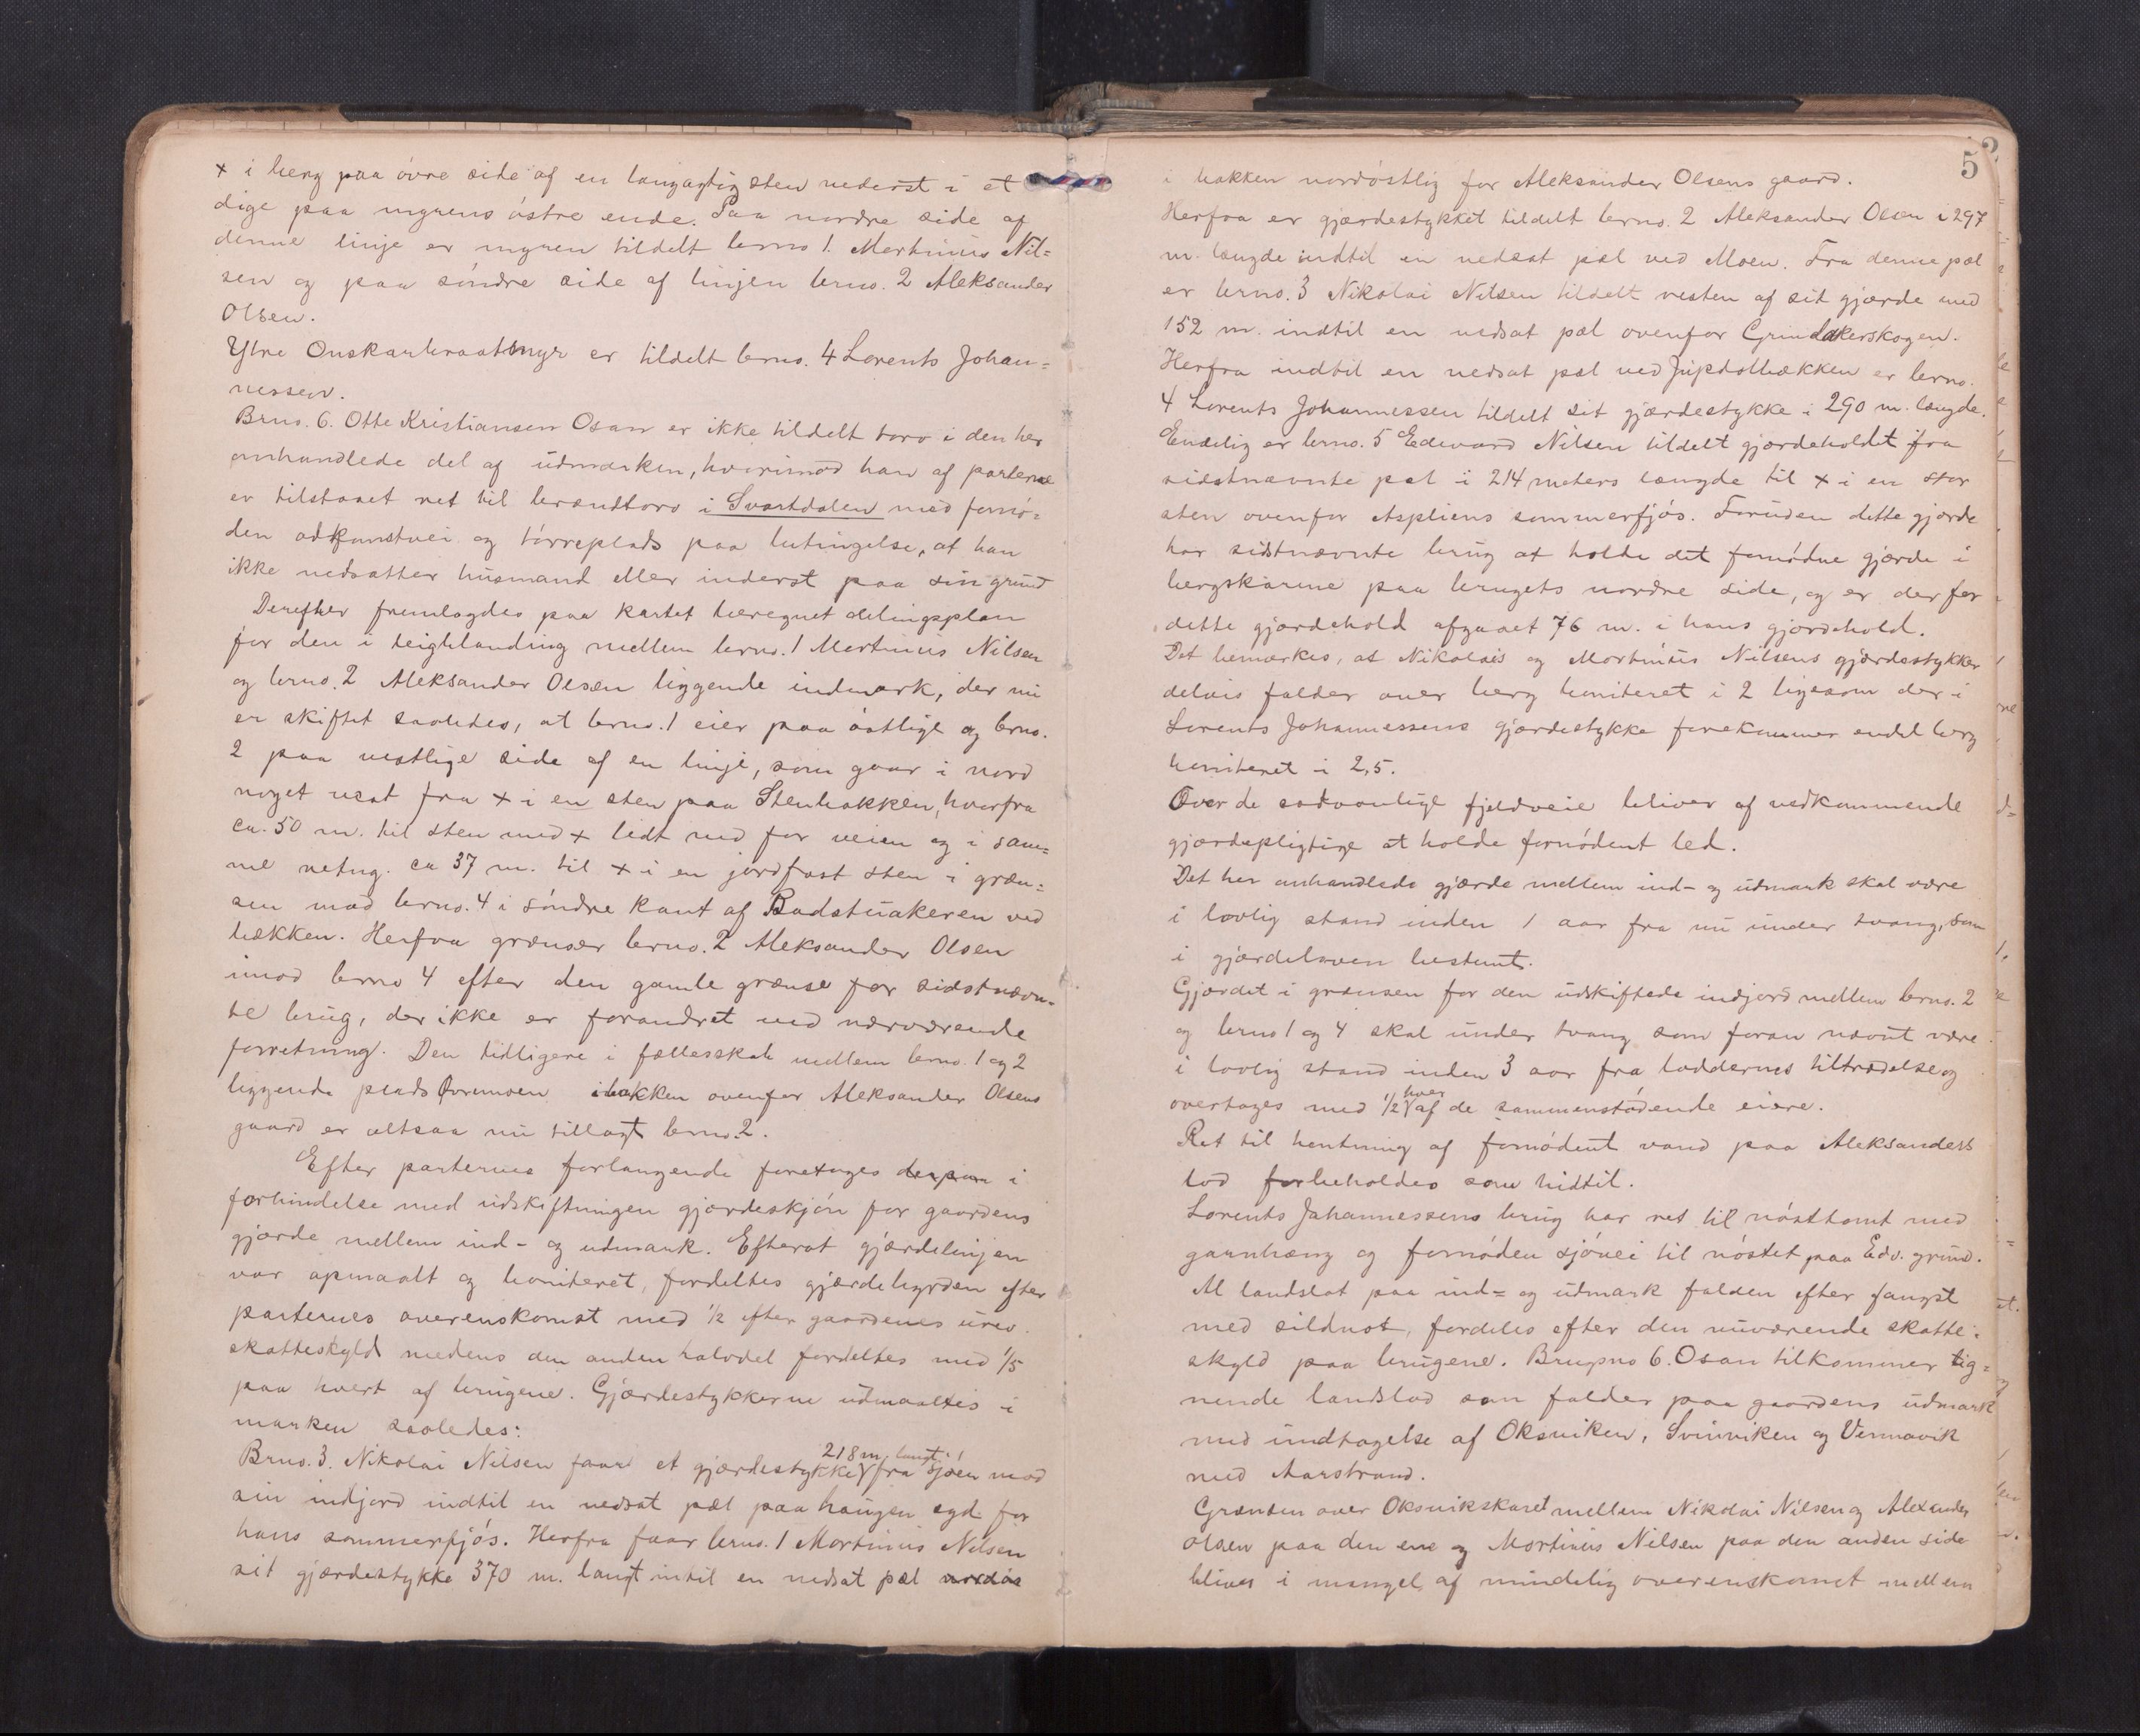 x i berg paa óvre side af en langagtig sten nederst i et
dige paa myrens óstre ende. Paa nordre side af
denne linje er myren tildelt brno 1. Martinius Nil=
sen og paa sóndre side af linjen brno. 2 Aleksander
Olsen.
Ytre Onskarbraatmyr er tildelt brno. 4 Lorents Johan=
nessen.
Brno. 6. Otte Kristiansen Osan er ikke tildelt torv i den her
omhandlede del af udmarken, hvorimod han af parterne
er tilstaaet ret til brændtorv i Svartdalen med fornó=
den adkomstvei og tórreplads paa betingelse, at han
ikke nedsætter husmand eller inderst paa sin grund
Derefter fremlagdes paa kartet beregnet delingsplan
for den i teigblanding mellem brno. 1 Martinius Nilsen
og brno. 2 Aleksander Olsen liggende indmark, der nu
er skiftet saaledes, at brno. 1 eier paa óstlige og brno.
2 paa vestlige side af en linje, som gaar i nord
noget vest fra x i en sten paa Stenbakken, hvorfra
ca. 50 m. til sten med x lidt ned for veien og i sam=
me retng. ca 37 m. til x i en jordfast sten i græn=
sen mod brno. 4 i sóndre kant af Badstuakeren ved
bækken. Herfra grænser brno. 2 Aleksander Olsen
imod brno 4 efter den gamle grænse for sidstnævn=
te brug, der ikke er forandret ved nærværende
forretning. Den tidligere i fællesskab mellem brno. 1 og 2
liggende plads Óvremoen i bakken ovenfor Aleksander Olsens
gaard er altsaa nu tillagt brno. 2.
Efter parternes forlangende foretages i
forbindelse med udskiftningen gjærdeskjón for gaardens
gjærde mellem ind- og udmark. Efterat gjærdelinjen
var opmaalt og boniteret, fordeltes gjærdebyrden efter
parternes overenskomst med 1/2 efter gaardenes urev.
skatteskyld medens den anden halvdel fordeltes med 1/5
paa hvert af brugene. Gjærdestykkerne udmaaltes i
marken saaledes:
Brno. 3. Nikolai Nilsen faar et gjærdestykke 218 m. langt fra sjóen mod
sin indjord indtil en nedsat pæl paa haugen syd for
hans sommerfjós. Herfra faar brno. 1 Martinius Nilsen
sit gjærdestykke 370 m. langt intil en nedsat pæl
5
i bakken nordóstlig for Aleksander Olsens gaard.
Herfra er gjærdestykket tildelt brno. 2 Aleksander Olsen i 297
m. længde indtil en nedsat pæl ved Moen. Fra denne pæl
er brno. 3 Nikolai Nilsen tildelt resten af sit gjærde med
152 m. indtil en nedsat pæl ovenfor Grindakerskogen.
Herfra indtil en nedsat pæl ved Jupdalbækken er brno.
4 Lorents Johannessen tildelt sit gjærdestykke i 290 m. længde.
Endelig er brno. 5 Edevard Nilsen tildelt gjærdeholdet fra
sidstnævnte pæl i 214 meters længde til x i en stor
sten ovenfor Aspliens sommerfjós. Foruden dette gjærde
har sidstnævnte brug at holde det fornódne gjærde i
bergskarene paa brugets nordre side, og er derfor
dette gjærdehold afgaaet 76 m. i hans gjærdehold.
Det bemærkes, at Nikolais og Martinius Nilsens gjærdestykker
delvis falder over berg boniteret i 2 ligesom der i
Lorents Johannessens gjærdestykke forekommer endel berg
boniteret i 2,5.
Over de sedvanlige fjeldveie bliver af vedkommende
gjærdepligtige at holde fornódent led.
Det her omhandlede gjærde mellem ind- og udmark skal være
i lovlig stand inden 1 aar fra nu under tvang, som
i gjærdeloven bestemt.
Gjærdet i grænsen for den udskiftede indjord mellem brno. 2
og brno 1 og 4 skal under tvang som foran nævnt være
i lovlig stand inden 3 aar fra loddernes tiltrædelse og
overtages med 1/2 hver af de sammenstódende eiere.
Ret til hentning af fornódent vand paa Aleksanders
lod forbeholdes som hidtil.
Lorents Johannessens brug har ret til nósttomt med
garnhæng og fornóden sjóvei til nóstet paa Edv. grund.
Al landslot paa ind= og udmark falden efter fangst
med sildnot, fordeles efter den nuværende skatte=
skyld paa brugene. Brugsno 6. Osan tilkommer lig=
nende landslod som falder paa gaardens udmark
med undtagelse af Oksviken, Svinviken og Vennavik
med Aarstrand.
Grænsen over Oksvikskaret mellem Nikolai Nilsen og Alexander
Olsen paa den ene og Martinius Nilsen paa den anden side
bliver i mangel af mindelig overenskomst mellem